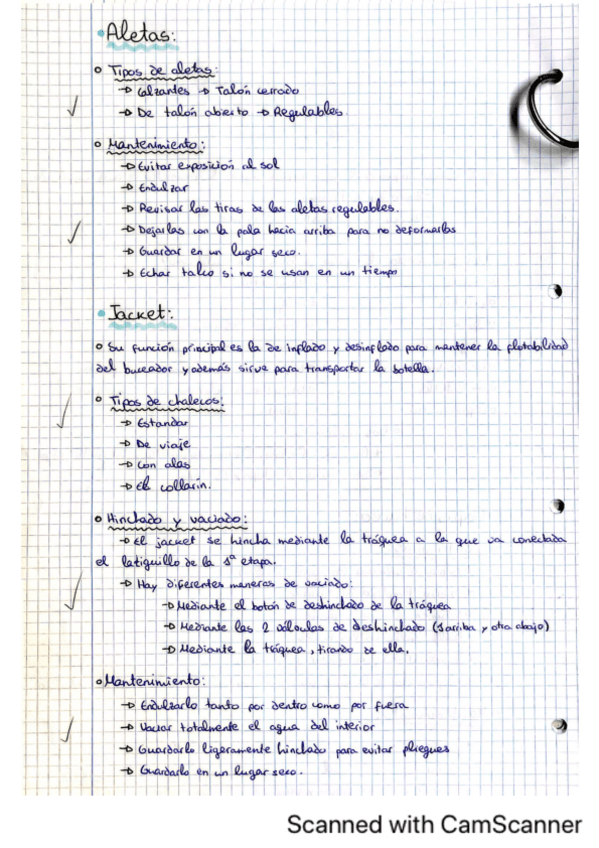 • Aletas:
o Tipos de aletas:
→ Calzantes → Talón cerrado
→ De talón abierto → Regulables.
o Mantenimiento:
→ Evitar exposición al sol
→ Endulzar
→ Revisar las tiras de las aletas regulables.
→ Dejarlas con la pala hacia arriba para no deformarlas
→ Guardar en un lugar seco.
→ Echar talco si no se usan en un tiempo
• Jacket:
o Su función principal es la de inflado y desinflado para mantener la flotabilidad
del buceador y además sirve para transportar la botella.
o Tipos de chalecos:
→ Estandar
→ De viaje
→ Con alas
→ El collarín.
o Hinchado y vaciado:
→ El jacket se hincha mediante la tráquea a la que va conectada
el latiguillo de la 1ª etapa.
→ Hay diferentes maneras de vaciado:
→ Mediante el botón de deshinchado de la tráquea
→ Mediante las 2 válvulas de deshinchado (1 arriba y otra abajo)
→ Mediante la tráquea, tirando de ella.
o Mantenimiento:
→ Endulzarlo tanto por dentro como por fuera
→ Vaciar totalmente el agua del interior
→ Guardarlo ligeramente hinchado para evitar pliegues
→ Guardarlo en un lugar seco.
Scanned with CamScanner